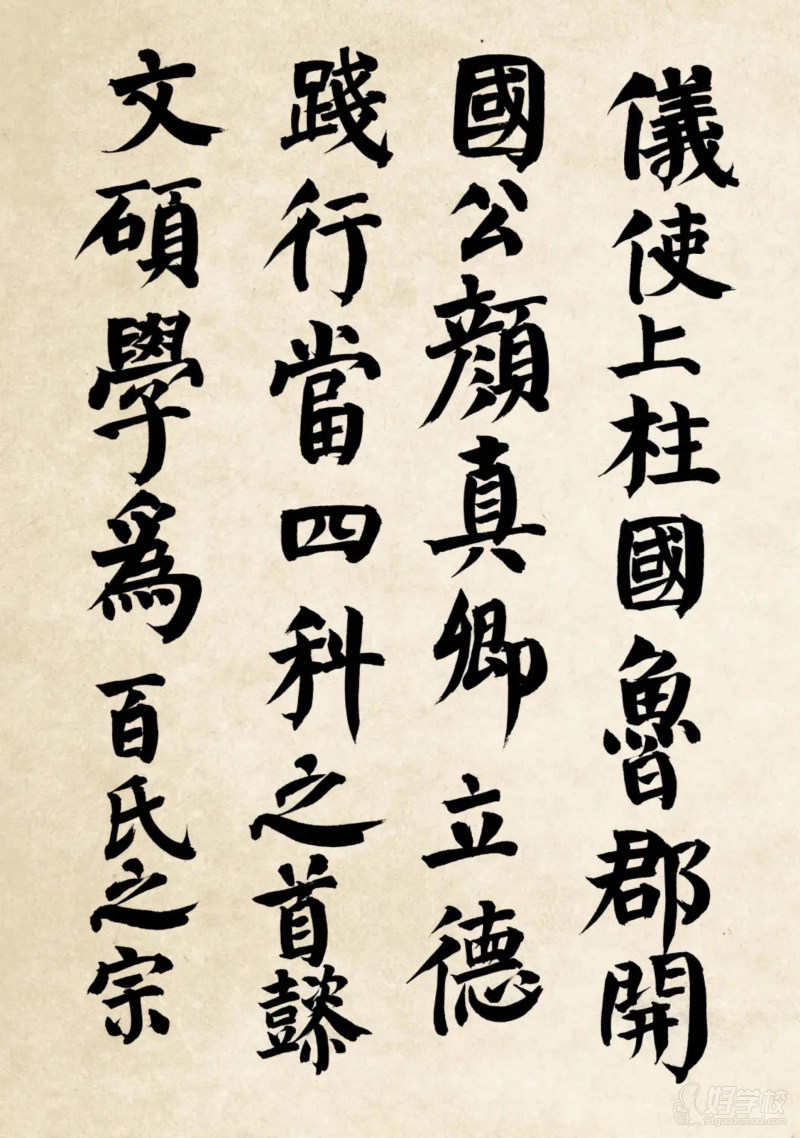 儀使上柱國魯郡開
國公顏真卿立德
踐行當四科之首懿
文碩學為百氏之宗
好学校
91goodschool.com